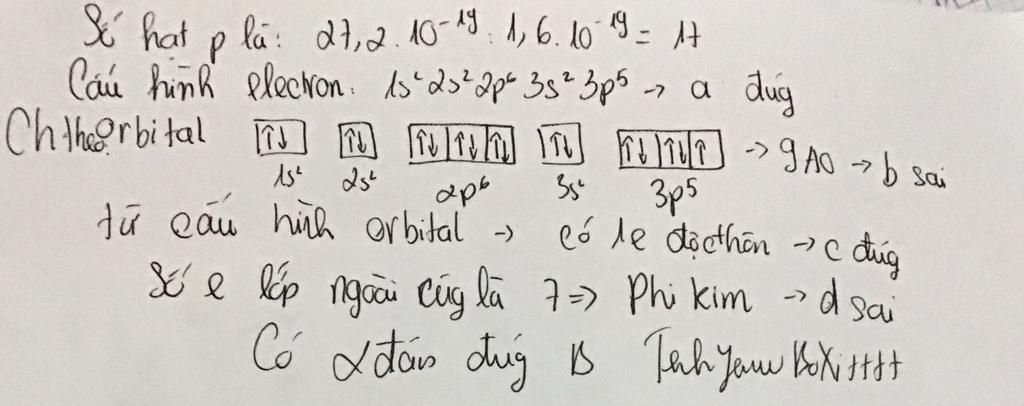 Số hạt p là: 27,2.10⁻¹⁹ : 1,6.10⁻¹⁹ = 17
Cấu hình electron: 1s² 2s² 2p⁶ 3s² 3p⁵ → a đúg
Ch theo orbital ↑↓ ↑↓ ↑↓ ↑↓ ↑↓ ↑↓ ↑↓ ↑↓ ↑ → 9 AO → b sai
1s² 2s² 2p⁶ 3s² 3p⁵
từ cấu hìh orbital → có 1e độc thân → c đúg
Số e lớp ngoài cùg là 7 => Phi kim → d sai
Có 2 đáp đúg B